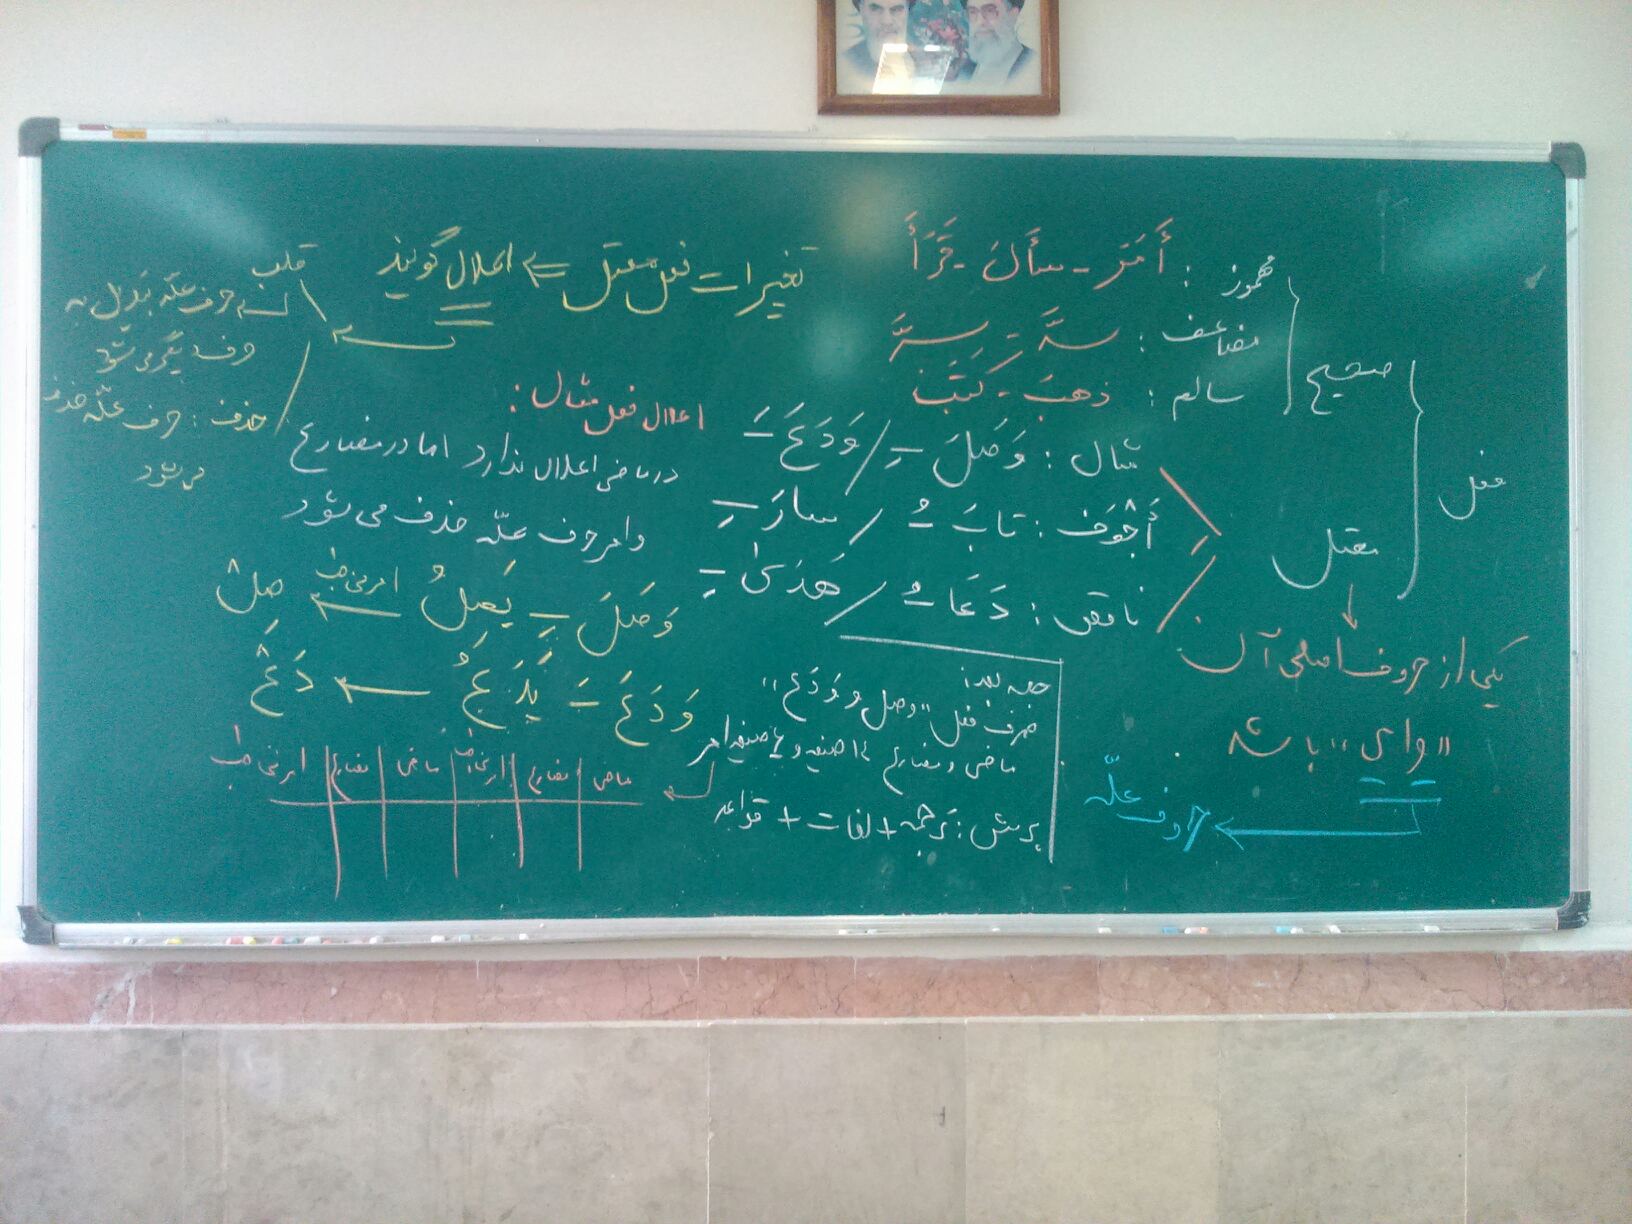 فعل
صحیح
مهموز : أَمَرَ - سَأَلَ - قَرَأَ
مضاعف : سدَّ - سرَّ
سالم : ذهبَ - کَتَبَ
معتل
یکی از حروف اصلی آن
"وای" باشد
حروف علّه
مثال : وَصَلَ ـِ / وَدَعَ ـَ
أجْوَف : تابَ ـُ / سارَ ـِ
ناقص : دَعَا ـُ / هَدَیٰ ـِ
جلسه بعد :
صرف فعل "وصل و وَدَعَ"
ماضی و مضارع ۱۴ صیغه و ۶ صیغه امر
پرسش : ترجمه + لغات + قواعد
تغییرات فعل معتل ⇐ اعلال گویند
قلب
حرف علّه تبدیل به
حرف دیگر می شود
حذف : حرف علّه حذف
می شود
اعلال فعل مثال :
در ماضی اعلال ندارد اما در مضارع
و امر حرف علّه حذف می شود
وَصَلَ ـِ یَصِلُ امر مخاطب صِلْ
وَدَعَ ـَ یَدَعُ دَعْ
ماضی | مضارع | امر مخاطب | ماضی | مضارع | امر مخاطب